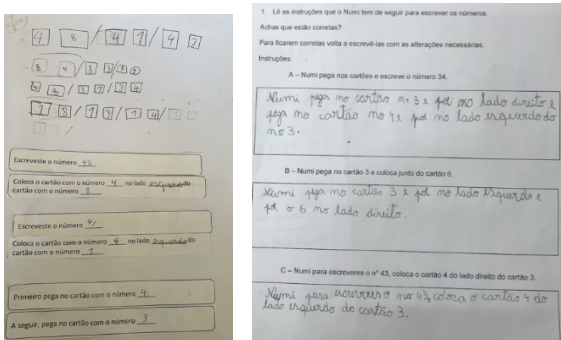 4 8 / 4 1 / 4 2
Escreveste o número 48
Coloca o cartão com o número 4 no lado esquerdo do
cartão com o número 8
Escreveste o número 41
Coloca o cartão com o número 4 no lado esquerdo do
cartão com o número 1
Primeiro pega no cartão com o número 4
A seguir, pega no cartão com o número 3
1. Lê as instruções que o Numi tem de seguir para escrever os números.
Achas que estão corretas?
Para ficarem corretas volta a escrevê-las com as alterações necessárias.
Instruções:
A – Numi pega nos cartões e escreve o número 34.
Numi pega no cartão no 3 e põe no lado direito e
pega no cartão no 4 e põe no lado esquerdo do
no 3.
B – Numi pega no cartão 3 e coloca junto do cartão 6.
Numi pega no cartão 3 e põe no lado esquerdo e
põe o 6 no lado direito.
C – Numi para escreveres o nº 43, coloca o cartão 4 do lado direito do cartão 3.
Numi para no 43, coloca o cartão 4 do
lado esquerdo do cartão 3.